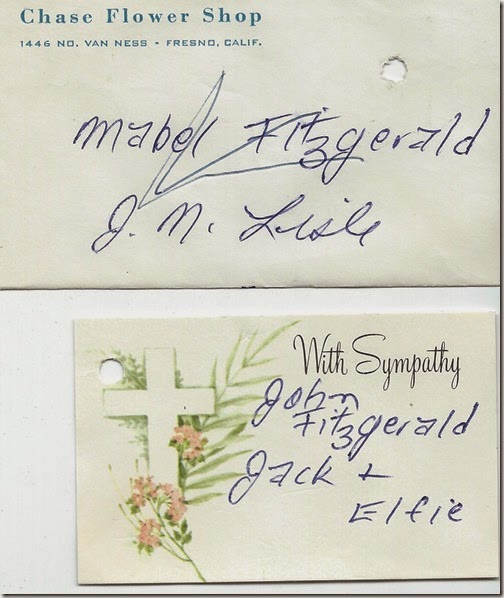 Chase Flower Shop
1446 NO. VAN NESS - FRESNO, CALIF.
Mabel Fitzgerald
J. N. Lisle
With Sympathy
John
Fitzgerald
Jack +
Elfie